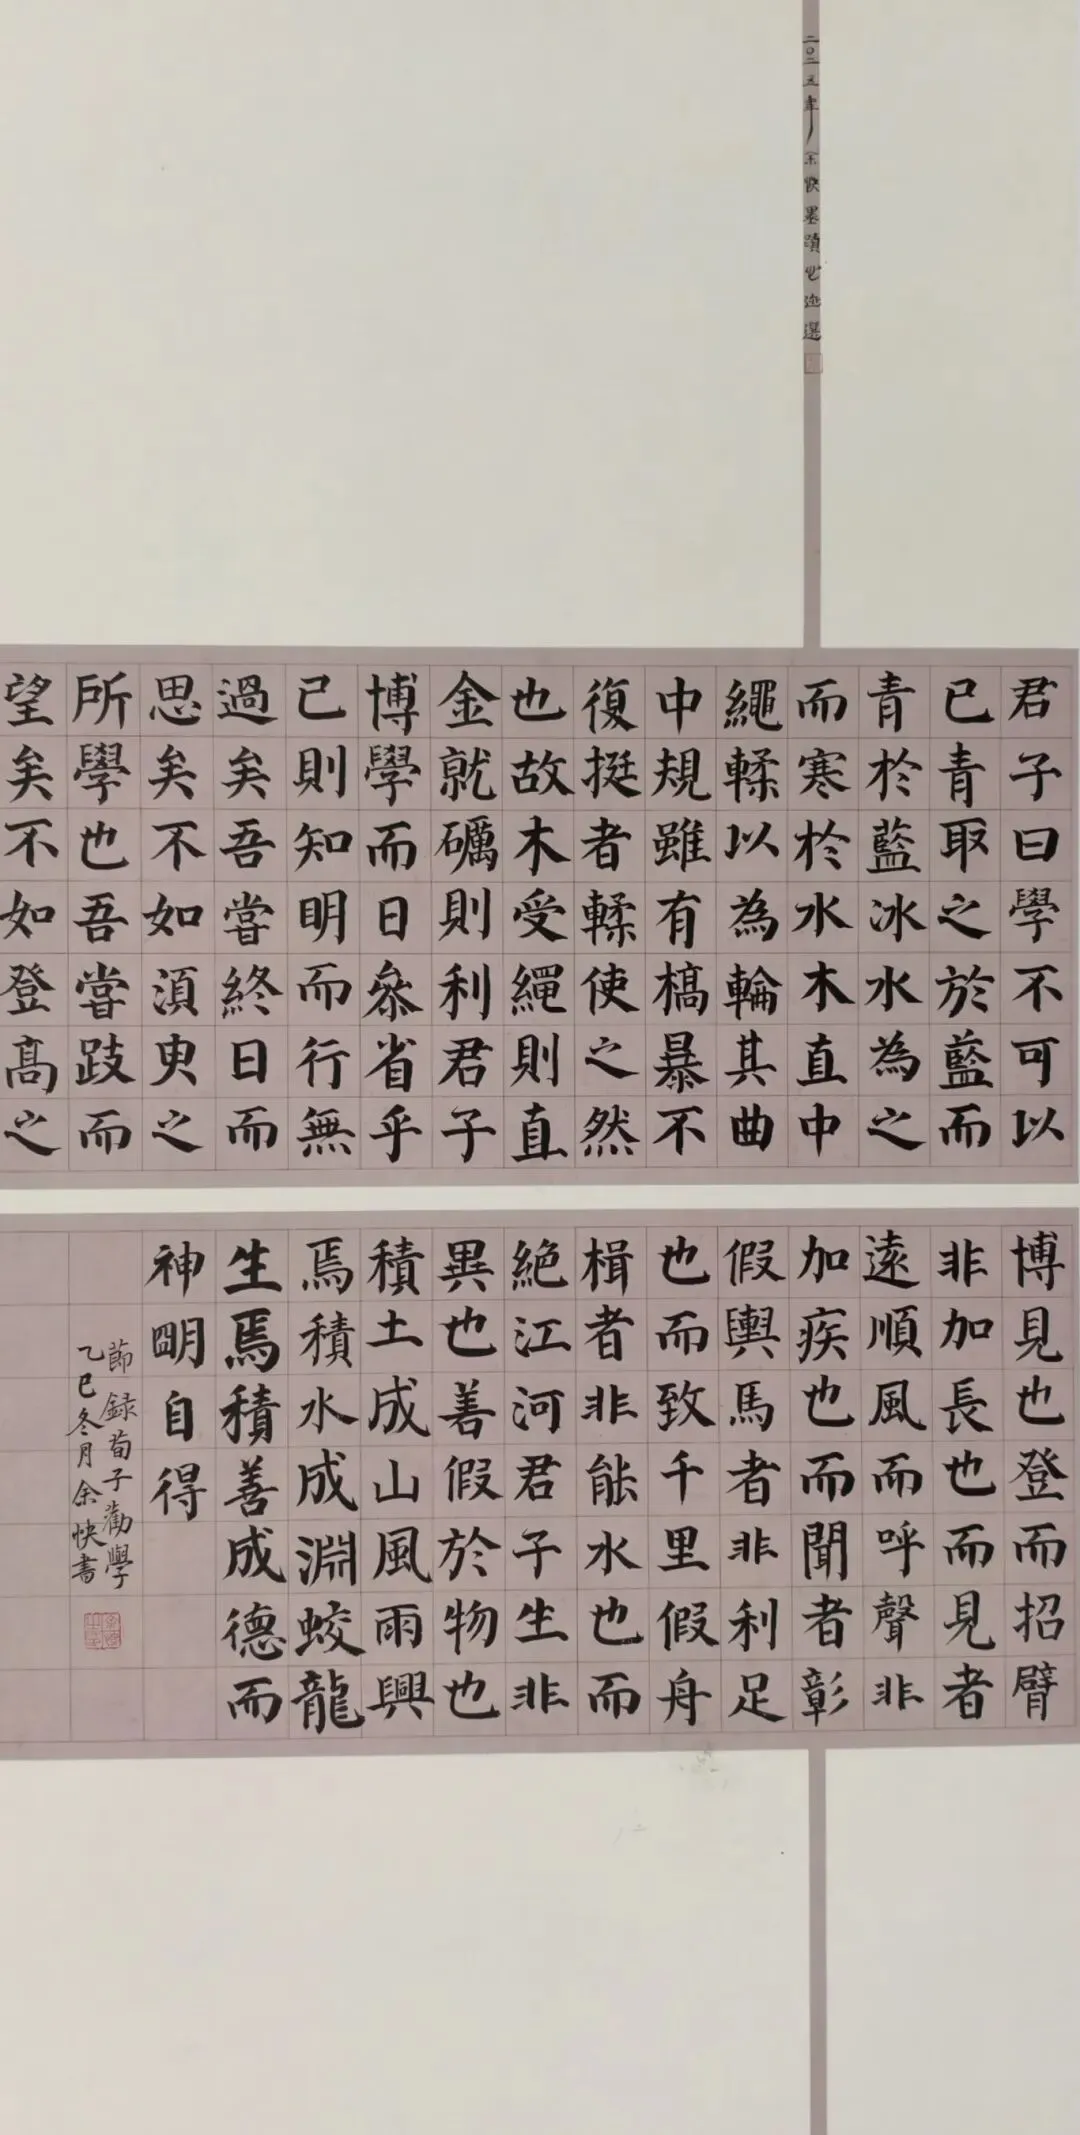 二〇二五年余快墨蹟心迹選
君子曰學不可以
已青取之於藍而
青於藍冰水為之
而寒於水木直中
繩輮以為輪其曲
中規雖有槁暴不
復挺者輮使之然
也故木受繩則直
金就礪則利君子
博學而日參省乎
己則知明而行無
過矣吾嘗終日而
思矣不如須臾之
所學也吾嘗跂而
望矣不如登高之
博見也登而招臂
非加長也而見者
遠順風而呼聲非
加疾也而聞者彰
假輿馬者非利足
也而致千里假舟
楫者非能水也而
絕江河君子生非
異也善假於物也
積土成山風雨興
焉積水成淵蛟龍
生焉積善成德而
神明自得
節録荀子勸學
乙巳冬月余快書